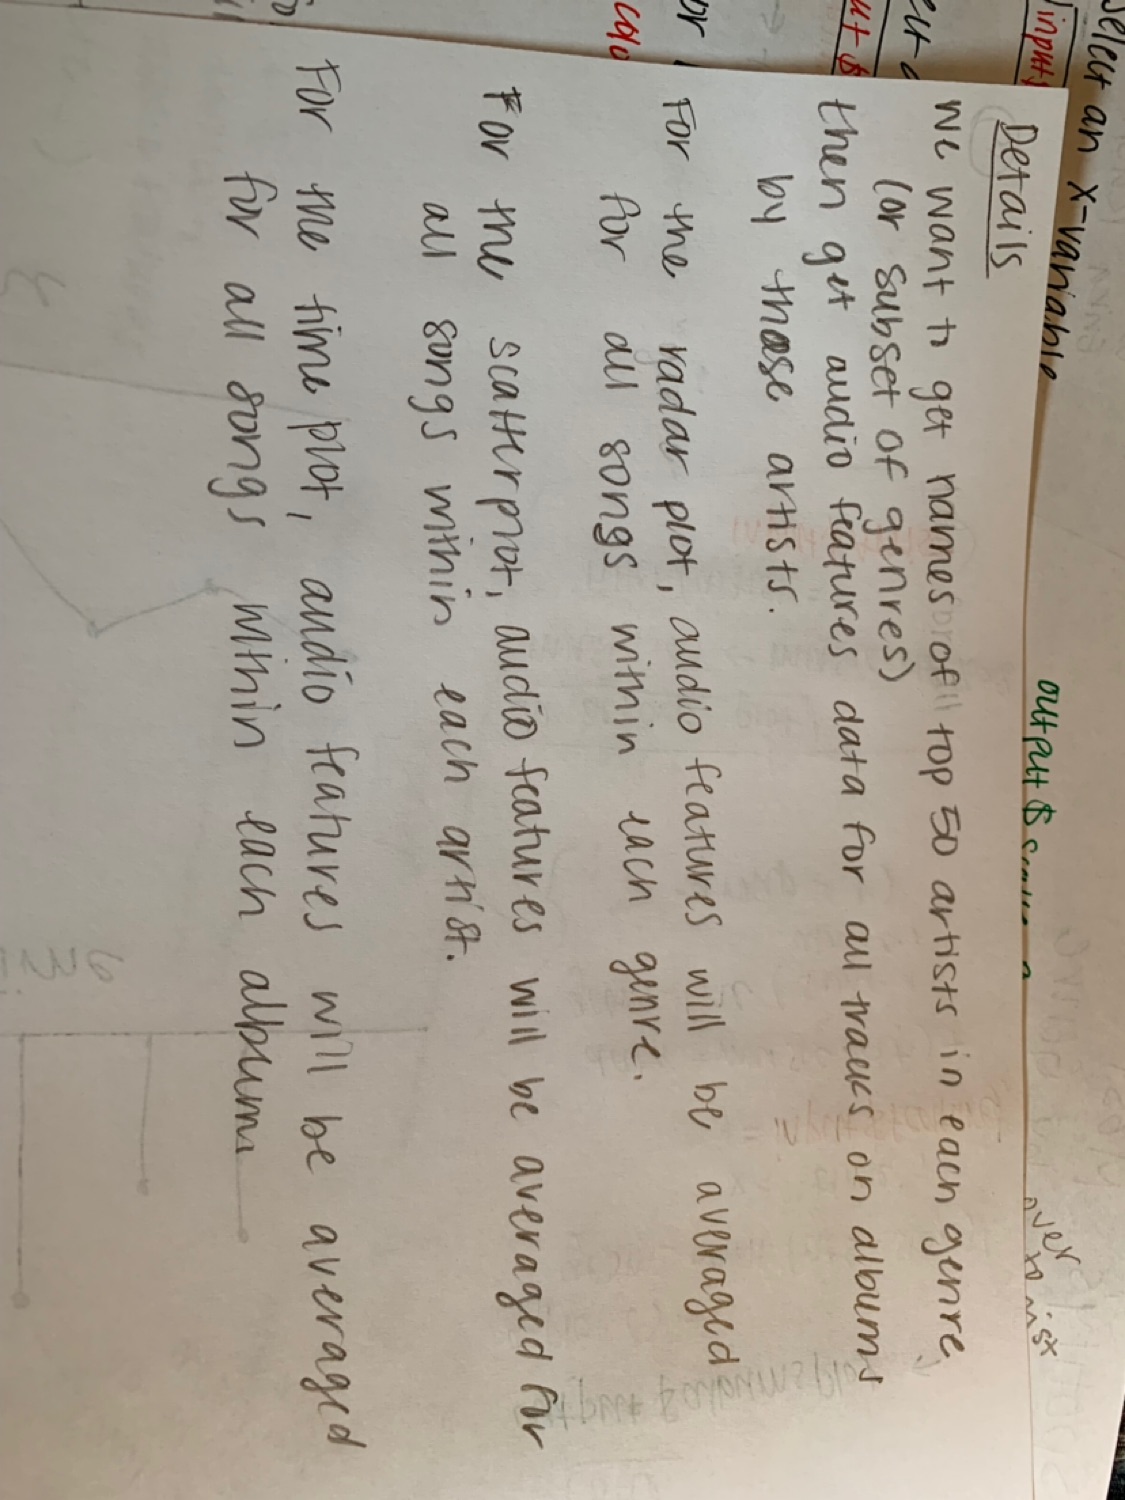 Select an x-variable
input$
output $
over
to
Details
We want to get names of top 50 artists in each genre
(or subset of genres)
then get audio features data for all tracks on albums
by those artists.
For the radar plot, audio features will be averaged
for all songs within each genre.
For the scatterplot, audio features will be averaged for
all songs within each artist.
For the time plot, audio features will be averaged
for all songs within each album.
or
colo